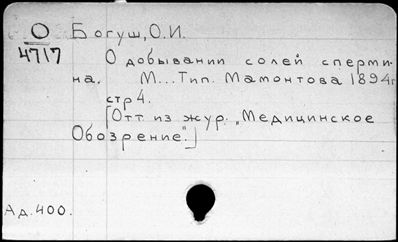 О
4717
Богуш, О.И.
О добывании солей сперми-
на. М... Тип. Мамонтова 1894г
стр 4.
[Отт из жур. „Медицинское
Обозрение".]
Ад. 400.